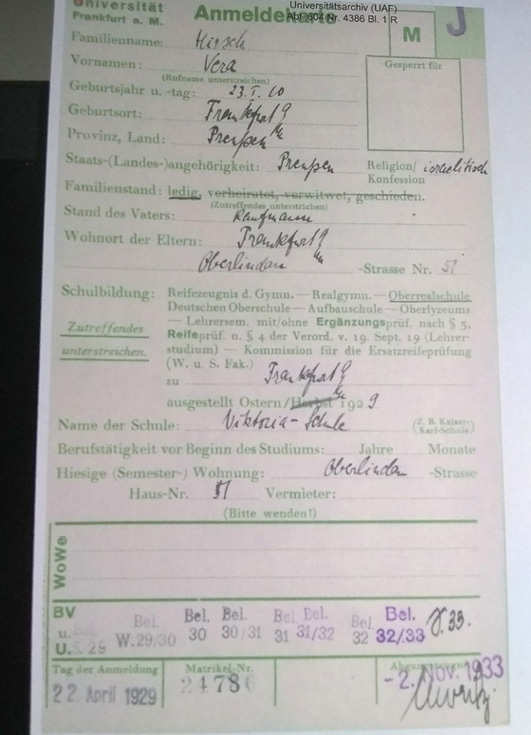 Universität
Frankfurt a. M.
Anmeldekarte
Universitätsarchiv (UAF)
Abt. 604 Nr. 4386 Bl. 1 R
M
J
Familienname: Hirsch
Vornamen: Vera
(Rufname unterstreichen)
Gesperrt für
Geburtsjahr u. -tag: 23. I. 10
Geburtsort: Frankfurt
Provinz, Land: Preußen
Staats-(Landes-)angehörigkeit: Preußen
Religion/Konfession israelitisch
Familienstand: ledig, verheiratet, verwitwet, geschieden.
(Zutreffendes unterstrichen)
Stand des Vaters: Kaufmann
Wohnort der Eltern: Frankfurt
Oberlindau -Strasse Nr. 51
Schulbildung:
Zutreffendes
unterstreichen.
Reifezeugnis d. Gymn. — Realgymn. — Oberrealschule
Deutschen Oberschule — Aufbauschule — Oberlyzeums
— Lehrersem. mit/ohne Ergänzungsprüf. nach § 5,
Reifeprüf. n. § 4 der Verord. v. 19. Sept. 19 (Lehrer-
studium) — Kommission für die Ersatzreifeprüfung
(W. u. S. Fak.)
zu Frankfurt
ausgestellt Ostern/Herbst 1929
Name der Schule: Viktoria-Schule
(Z. B. Kaiser-
Karl-Schule)
Berufstätigkeit vor Beginn des Studiums: Jahre Monate
Hiesige (Semester-) Wohnung: Oberlindau -Strasse
Haus-Nr. 51 Vermieter:
(Bitte wenden!)
WoWe
BV
u.
U.
S. 29
Bel.
W. 29/30
Bel.
30
Bel.
30/31
Bel.
31
Bel.
31/32
Bel.
32
Bel.
32/33
S. 33.
Tag der Anmeldung
22. April 1929
Matrikel-Nr.
-2. Nov. 1933